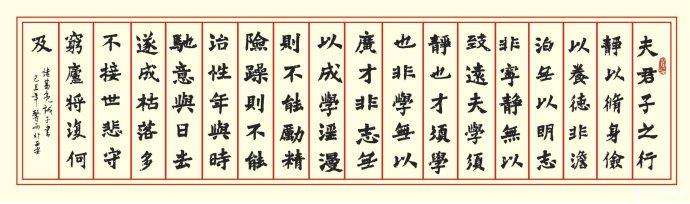 夫君子之行
靜以脩身儉
以養德非澹
泊無以明志
非寧靜無以
致遠夫學須
靜也才須學
也非學無以
廣才非志無
以成學淫漫
則不能勵精
險躁則不能
治性年與時
馳意與日去
遂成枯落多
不接世悲守
窮廬將復何
及
諸葛亮誡子書
己丑年